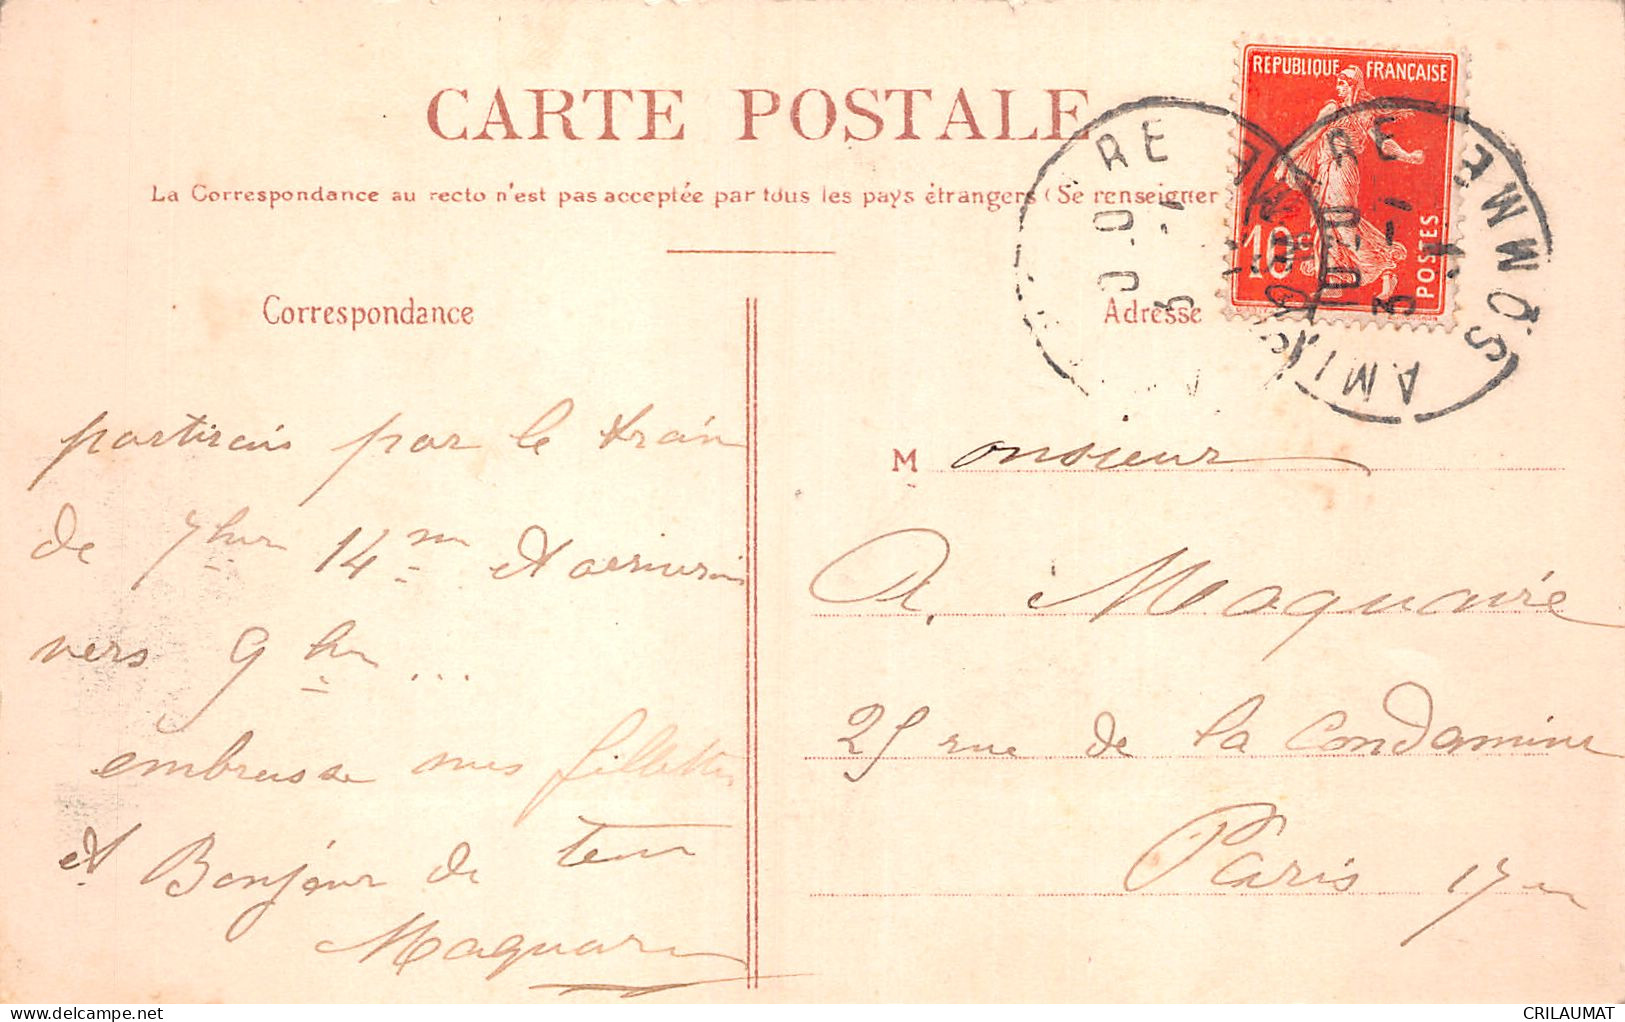 CARTE POSTALE
La Correspondance au recto n'est pas acceptée par tous les pays étrangers (Se renseigner
REPUBLIQUE FRANÇAISE
10
POSTES
SOMME
Correspondance
Adresse
partirais par le train
de 7 hrs 14 m et
vers 9 hrs ...
embrasse mes fillettes
et Bonjour de
Maquaire
Monsieur
A. Maquaire
25 rue de la Condamine
Paris 17
CRILAUMAT